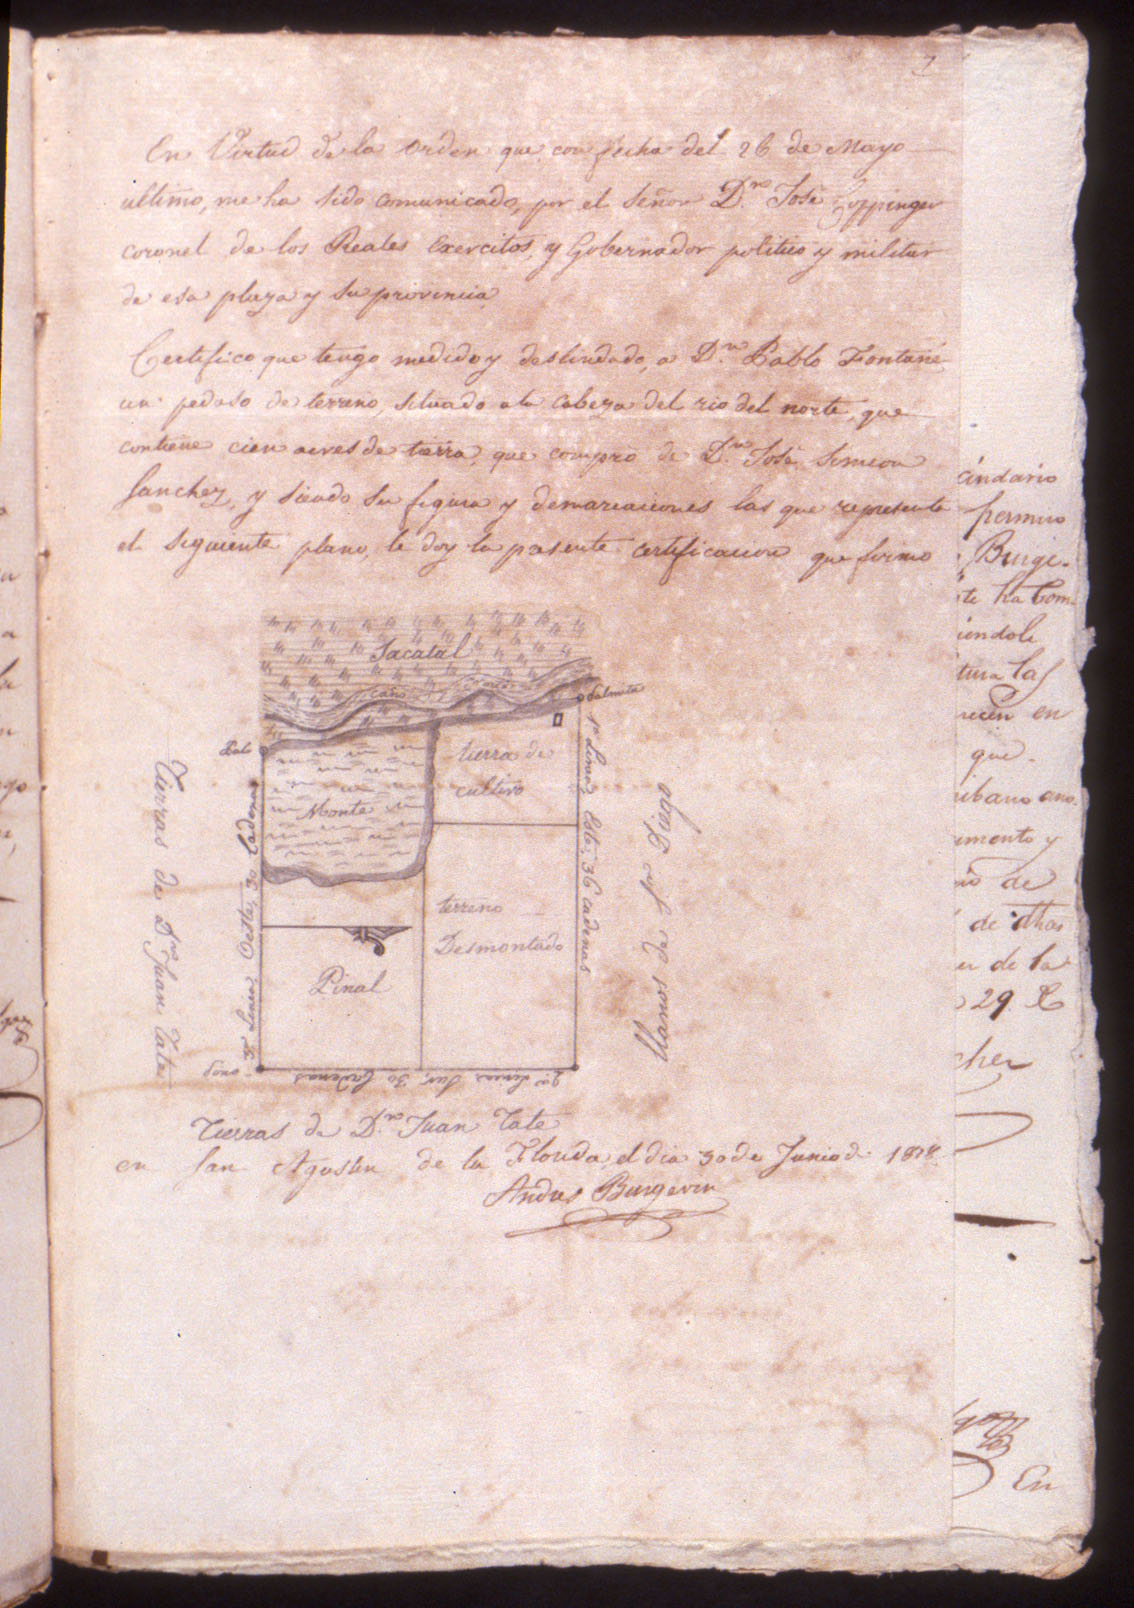 En Virtud de la orden que con fecha del 26 de Mayo
ultimo, me ha sido comunicado, por el Señor D.n José Coppinger
coronel de los Reales Exercitos, y Gobernador politico y militar
de esa plaza y su provincia
Certifico que tengo medido y deslindado, a D.n Pablo Fontané
un pedaso de terreno, situado a la cabeza del rio del norte, que
contiene cien acres de tierra, que compro de D.n José Simeon
Sanchez, y siendo su figura y demarcaciones las que represente
el siguiente plano, le doy la presente certificacion que firmo
Sacatal
caño
Palmita
Palo
tierra de
cultivo
Monte
terreno
Desmontado
Pinal
Pino
1a Linea Este, 36 cadenas
2a Linea Sur, 30 Cadenas
3a Linea Oeste, 30 Cadenas
Tierras de D.n Juan Tate
Llanos de Sn Diego
Tierras de D.n Juan Tate
en San Agustin de la Florida, el dia 30 de Junio d.
Andres Burgevin
cindario
permiso
Burge-
ha Com
iendole
tura las
en
que
ribano
umento y
de
de dhas
de la
29
chez
En